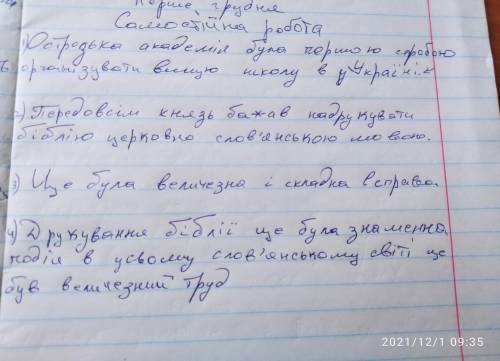 Перше грудня
Самостійна робота
1) Острозька академія була першою спробою
організувати вищу школу в Україні
2) Передовсім князь бажав надрукувати
біблію церковно слов'янською мовою.
3) Це була величезна і складна справа.
4) Друкування біблії це була знаменна
подія в усьому слов'янському світі це
був величезний труд
2021/12/1 09:35